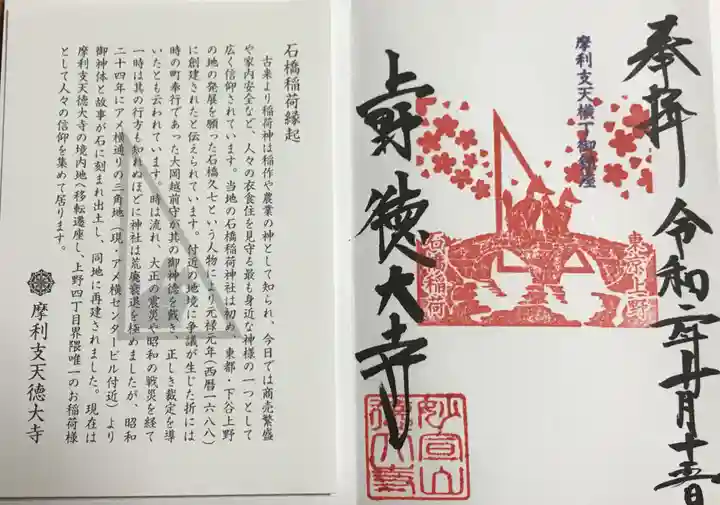 奉拝 令和二年十月十五日
摩利支天横丁御鎮座
東京上野
石橋稲荷
上野 徳大寺
妙宣山
徳大寺
石橋稲荷縁起
古来より稲荷神は稲作や農業の神として知られ、今日では商売繁盛
や家内安全など、人々の衣食住を見守る最も身近な神様の一つとして
広く信仰されています。当地の石橋稲荷神社は初め、東都・下谷上野
の地の発展を願った石橋久七という人物により元禄元年(西暦一六八八)
に創建されたと伝えられています。付近の地境に争議が生じた折には
時の町奉行であった大岡越前守が其の御神徳を戴き、正しき裁定を導
いたとも云われています。時は流れ、大正の震災や昭和の戦災を経て
一時は其の行方も知れぬほどに神社は荒廃衰退を極めましたが、昭和
二十四年にアメ横通りの三角地(現・アメ横センタービル付近)より
御神体と故事が石に刻まれ出土し、同地に再建されました。現在は
摩利支天徳大寺の境内地へ移転遷座し、上野四丁目界隈唯一のお稲荷様
として人々の信仰を集めて居ります。
摩利支天徳大寺